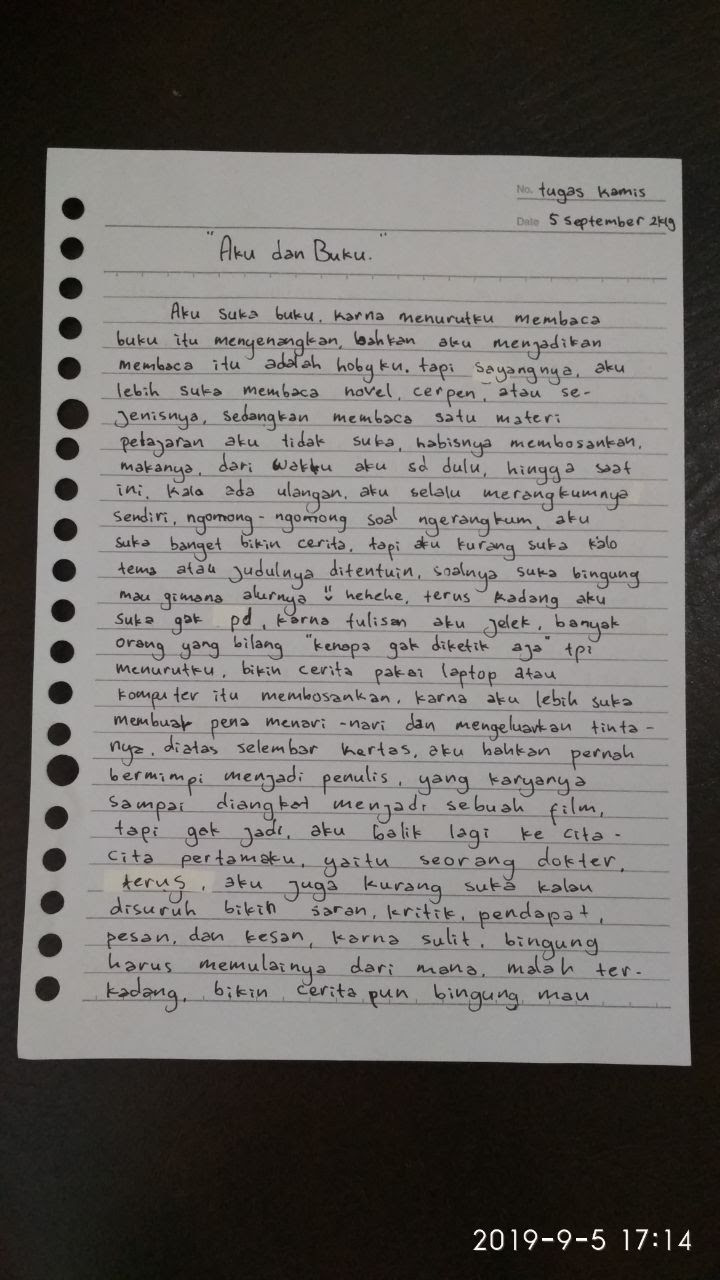 No. tugas kamis
Date 5 September 2k19
"Aku dan Buku."
Aku suka buku, karna menurutku membaca
buku itu menyenangkan, bahkan aku menjadikan
membaca itu adalah hobyku. tapi sayangnya, aku
lebih suka membaca novel, cerpen, atau se-
jenisnya, sedangkan membaca satu materi
pelajaran aku tidak suka, habisnya membosankan,
makanya, dari waktu aku sd dulu, hingga saat
ini, kalo ada ulangan, aku selalu merangkumnya
sendiri, ngomong-ngomong soal ngerangkum, aku
suka banget bikin cerita, tapi aku kurang suka kalo
tema atau judulnya ditentuin, soalnya suka bingung
mau gimana alurnya hehehe, terus kadang aku
suka gak pd, karna tulisan aku jelek, banyak
orang yang bilang "kenapa gak diketik aja" tpi
menurutku, bikin cerita pakai laptop atau
komputer itu membosankan, karna aku lebih suka
membuat pena menari-nari dan mengeluarkan tinta-
nya, diatas selembar kertas, aku bahkan pernah
bermimpi menjadi penulis, yang karyanya
sampai diangkat menjadi sebuah film,
tapi gak jadi, aku balik lagi ke cita-
cita pertamaku, yaitu seorang dokter,
terus, aku juga kurang suka kalau
disuruh bikin saran, kritik, pendapat,
pesan, dan kesan, karna sulit, bingung
harus memulainya dari mana, malah ter-
kadang, bikin cerita pun bingung mau
2019-9-5 17:14